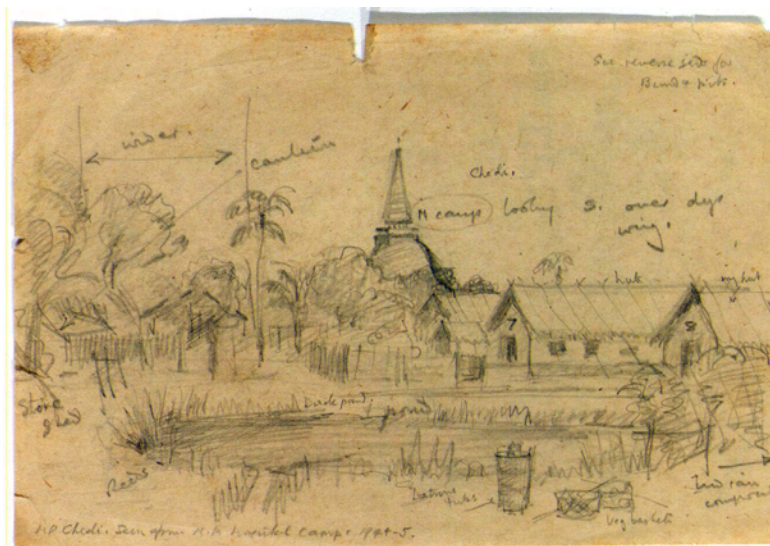 See reverse side for
Bund + huts.
wider.
canteen
Chedi.
N camp looking S. over dys
wing.
hut
my hut
7
8
Store
shed
Duck pond.
pond
Reeds
Latrine
tubs
Veg baskets
Indian
compound
Chedi. Seen from N.P. Hospital Camp. 1944-5.